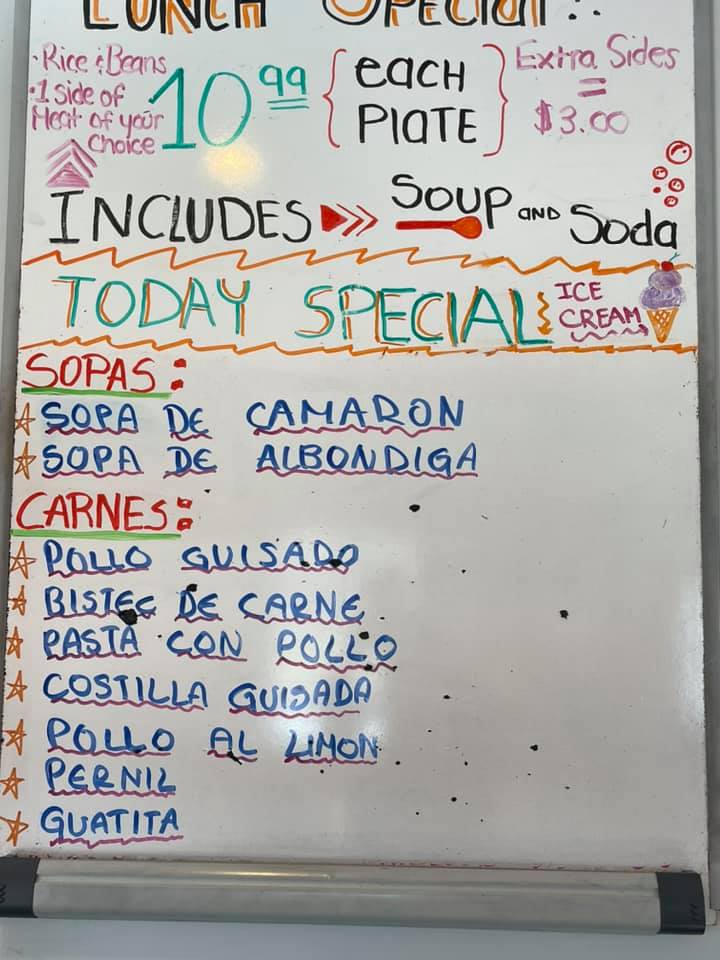 LUNCH SPECIAL:.
• Rice & Beans
• 1 Side of
Meat of your
Choice
10.99
each
Plate
Extra Sides
=
$3.00
INCLUDES Soup AND Soda
TODAY SPECIAL ICE
CREAM
SOPAS:
SOPA DE CAMARON
SOPA DE ALBONDIGA
CARNES:
POLLO GUISADO
BISTEC DE CARNE
PASTA CON POLLO
COSTILLA GUISADA
POLLO AL LIMON
PERNIL
GUATITA